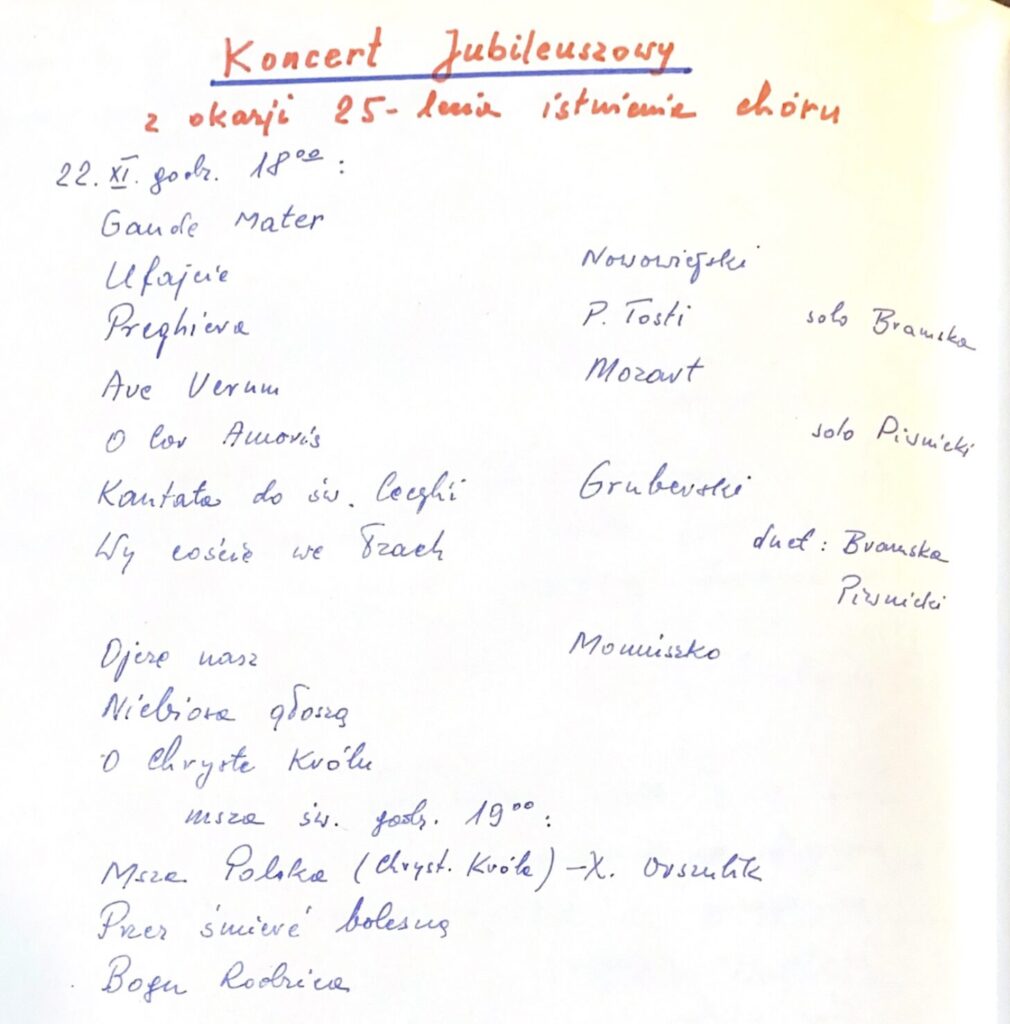 Koncert Jubileuszowy
z okazji 25-lecia istnienia chóru
22. XI. godz. 18⁰⁰ :
Gaude Mater
Ufajcie Nowowiejski
Preghiera P. Tosti solo Bramska
Ave Verum Mozart
O Cor Amoris solo Piwnicki
Kantata do św. Cecylii Gruberski
Wy coście we łzach duet : Bramska
Piwnicki
Ojcze nasz Moniuszko
Niebiosa głoszą
O Chryste Królu
msza św. godz. 19⁰⁰ :
Msza Polska (Chryst. Króla) – X. Orszulik
Przez śmierć bolesną
Bogu Rodzica